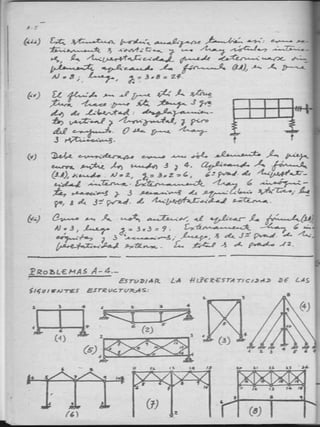 A-5
(iii) Esta estructura podría analizarse también así: como ex-
teriormente es isostática y no hay rótulas interio-
res, la hiperestaticidad puede determinarse sim-
plemente aplicando la fórmula (2A), en la que
N = 8, luego, q = 3×8 = 24.
(iv) El fluido en el que está la estruc-
tura hace que ésta tenga 3 gra-
dos de libertad: desplazamien-
tos vertical y horizontal, y giro
del conjunto. O sea que hay
3
(v) Debe considerarse como un sólo elemento la pieza
curva entre los nudos 3 y 4. Aplicando la fórmula
(2A), siendo N=2, q = 3×2 = 6, 6º grado de hiperestati-
cidad interna. Exteriormente, hay 6 incógni-
tas reacciones y 3 ecuaciones de equilibrio estático, lue-
go, es de 3er grado de hiperestaticidad externa.
(vi) Como en la nota anterior, al aplicar la fórmula (2A)
N = 3, luego q = 3×3 = 9. Exteriormente hay 6 in-
cógnitas y 3 ecuaciones, luego, es de 3er grado de hi-
perestaticidad externa. En total es de grado 12.
PROBLEMAS A-4.-
ESTUDIAR LA HIPERESTATICIDAD DE LAS
SIGUIENTES ESTRUCTURAS:
(1)
(2)
(3)
(4)
(5)
(6)
(7)
(8)